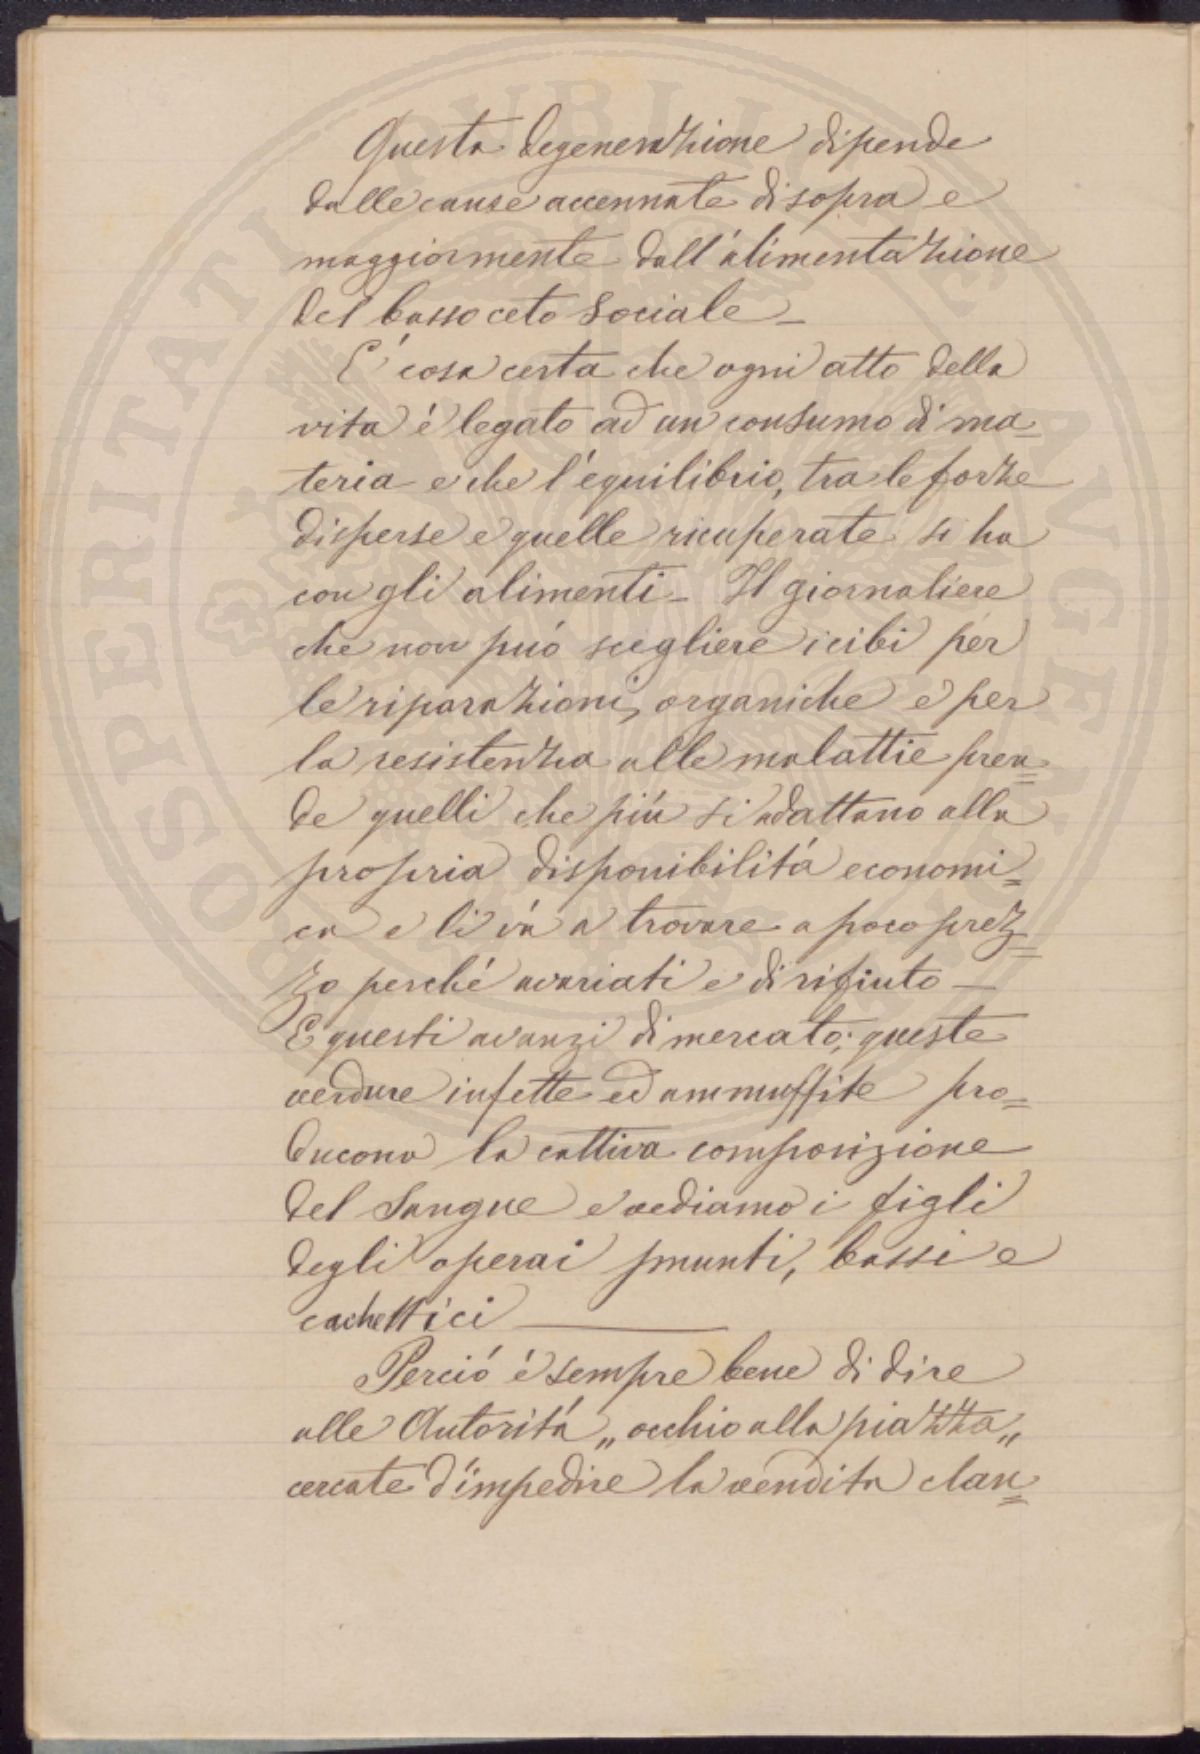 Questa degenerazione dipende
dalle cause accennate di sopra e
maggiormente dall'alimentazione
del basso ceto sociale_
E' cosa certa che ogni atto della
vita é legato ad un consumo di ma=
teria e che l'equilibrio, tra le forze
disperse e quelle ricuperate si ha
con gli alimenti_ Il giornaliere
che non puó scegliere i cibi per
le riparazioni, organiche e per
la resistenza alle malattie pren=
de quelli che piú si adattano alla
propria disponibilitá economi=
ca e li vá a trovare a poco prez=
zo perché avariati e di rifiuto—
E questi avanzi di mercato; queste
verdure infette ed ammuffite pro=
ducono la cattiva composizione
del Sangue e vediamo i figli
degli operai smunti, bassi e
cachettici ———
Perció é sempre bene di dire
alle Autoritá „occhio alla piazza„
cercate d'impedire la vendita clan=
PROSPERITATI PUBLICAE AVGENDAE